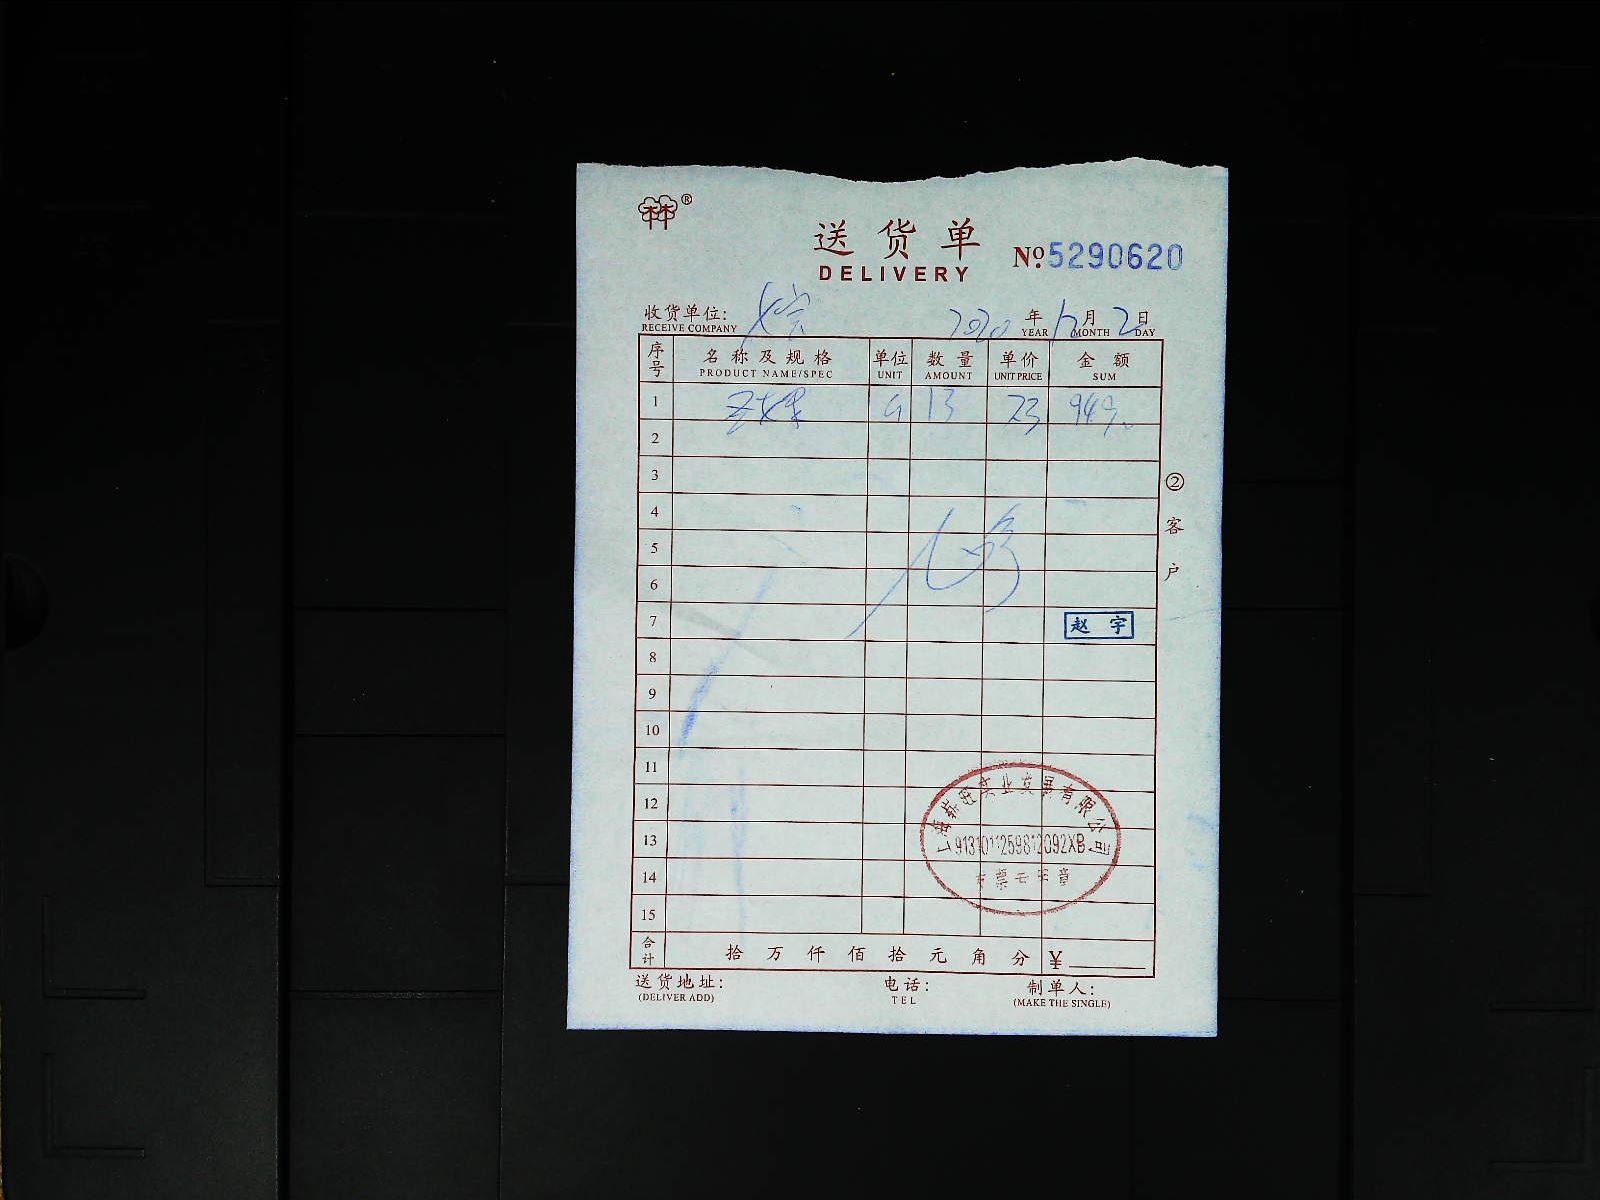 林®
送货单
DELIVERY
№ 5290620
收货单位：
RECEIVE COMPANY
2020年12月2日
YEAR MONTH DAY
序号 名称及规格 单位 数量 单价 金额
PRODUCT NAME/SPEC UNIT AMOUNT UNIT PRICE SUM
1 13 73 949
2
3
4
5
6
7 赵宇
8
9
10
11
12
13
14
15
② 客户
实业发展有限公司
合计 拾 万 仟 佰 拾 元 角 分 ¥
送货地址： 电话： 制单人：
(DELIVER ADD) TEL (MAKE THE SINGLE)